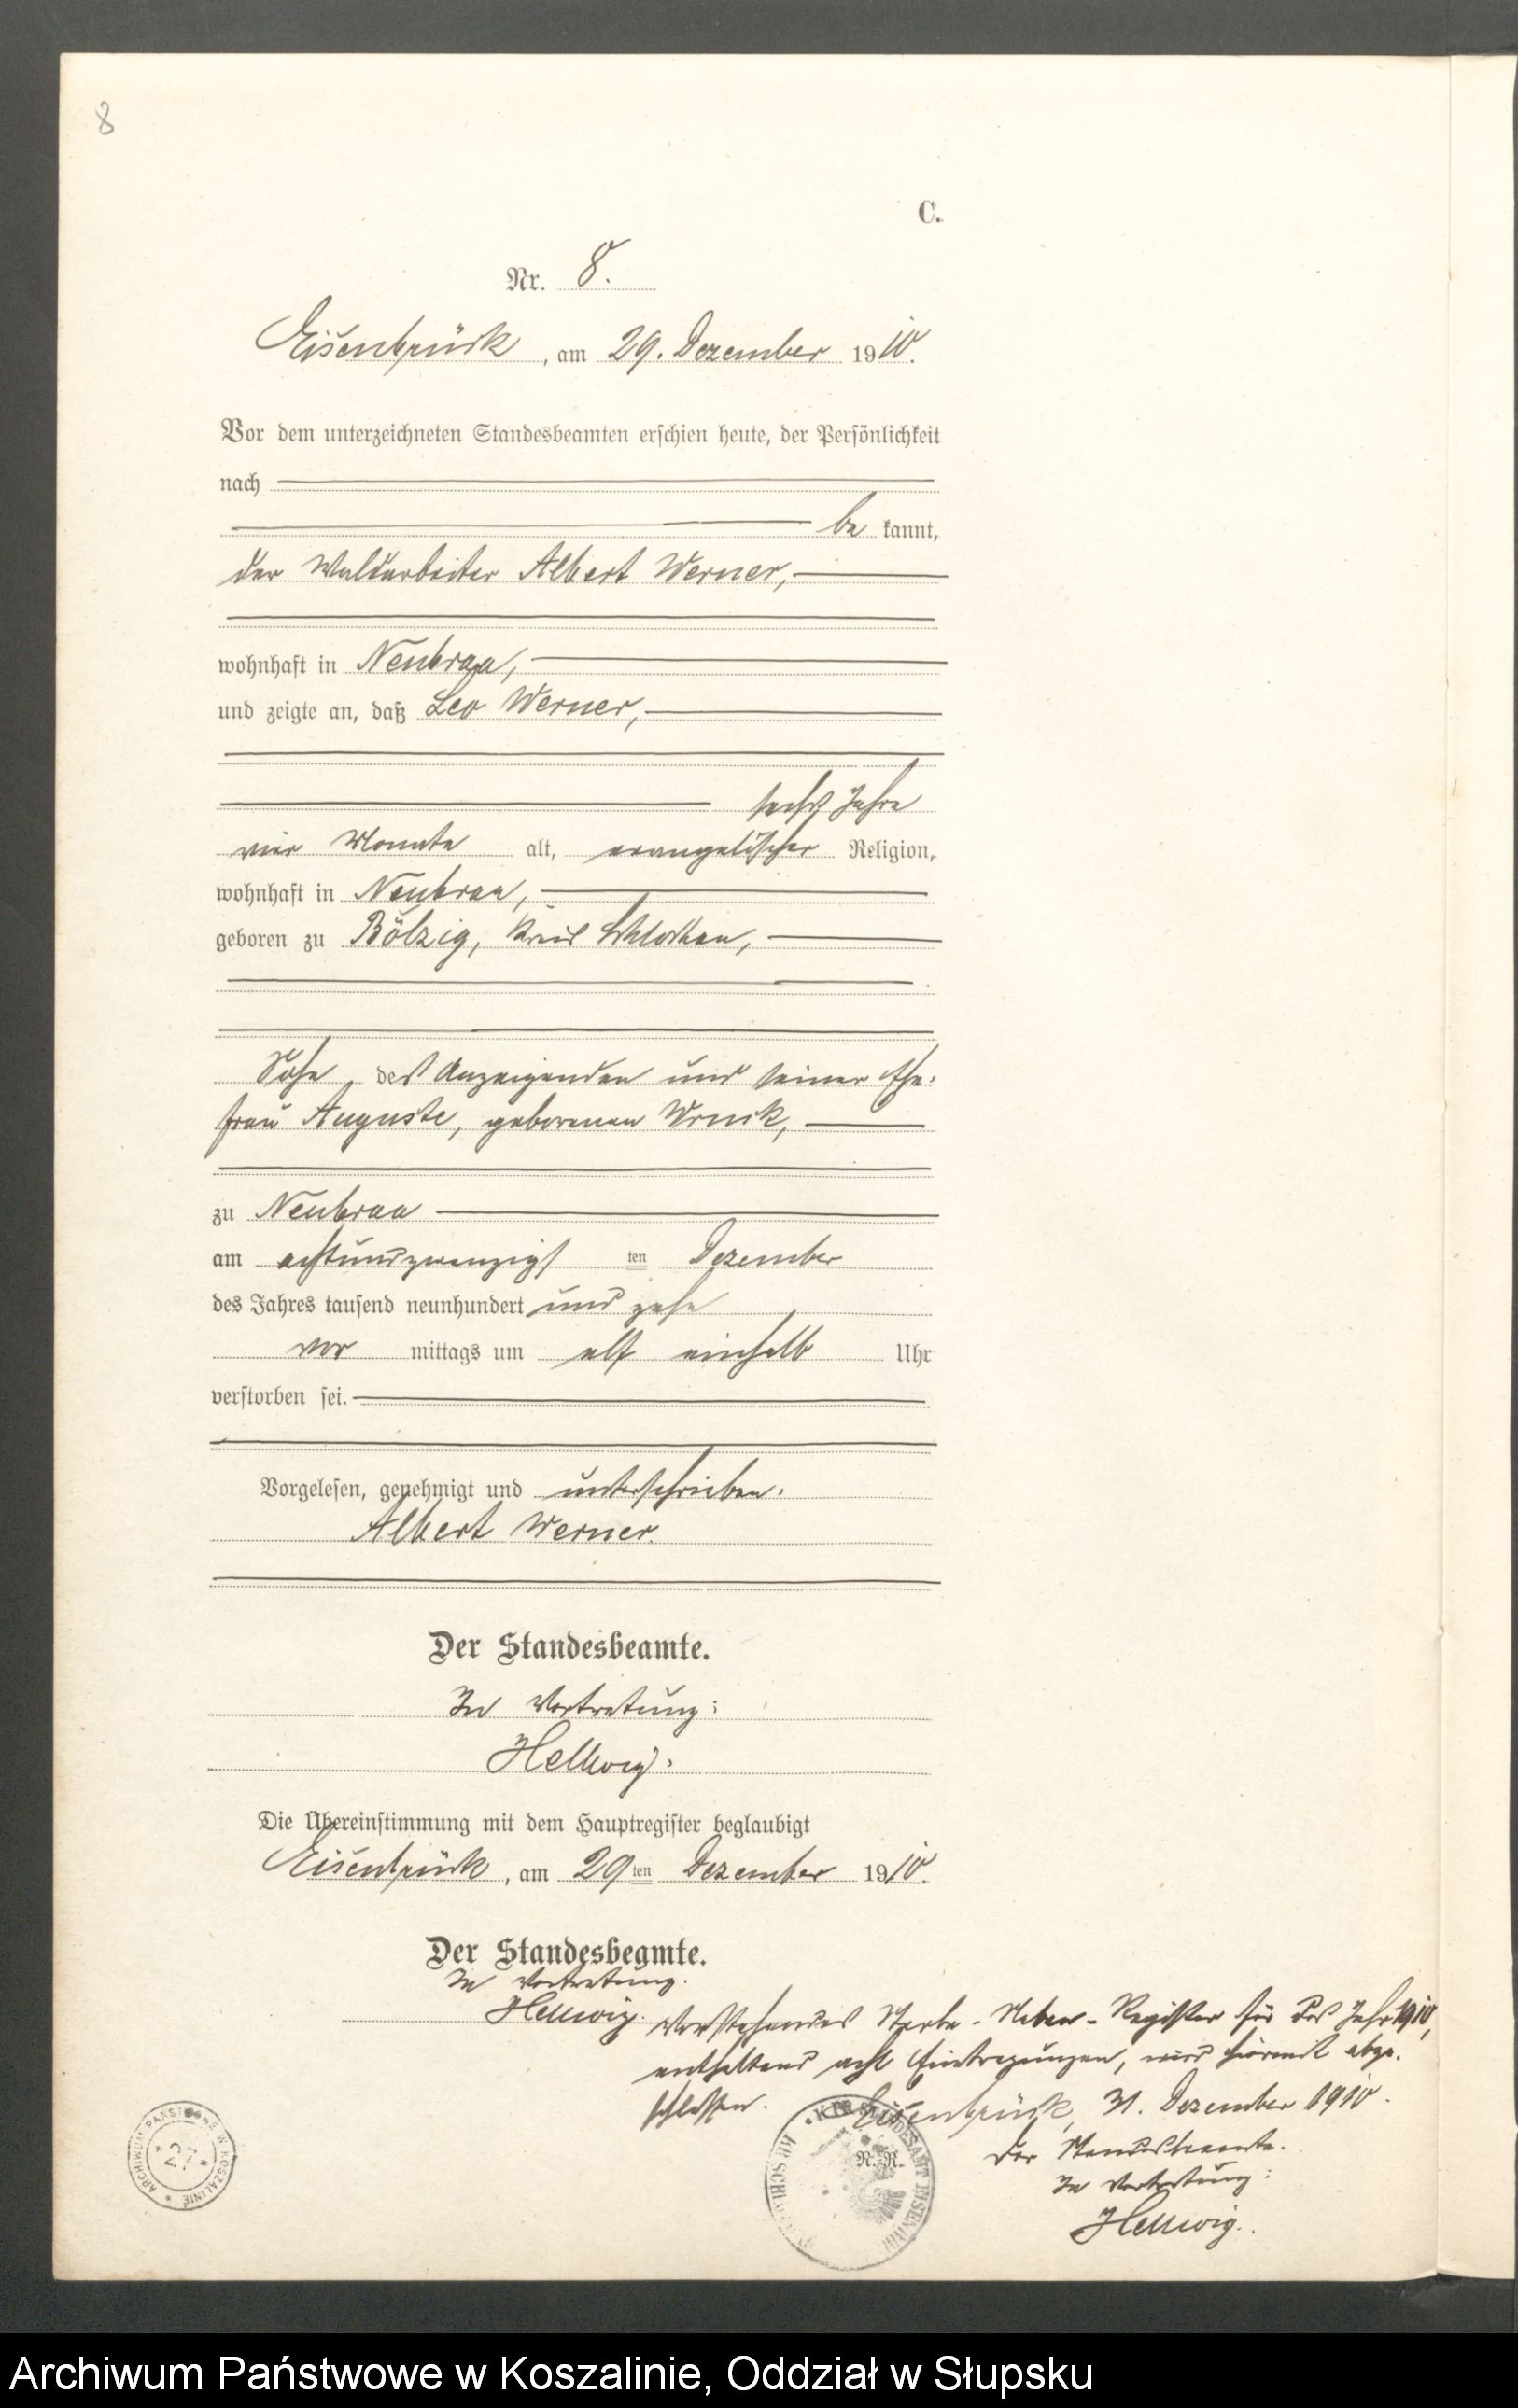 8
C.
Nr. 8.
Eisenbrück, am 29. Dezember 1910.
Vor dem unterzeichneten Standesbeamten erschien heute, der Persönlichkeit
nach
be kannt,
der Waldarbeiter Albert Werner,
wohnhaft in Neubraa,
und zeigte an, daß Leo Werner,
sechs Jahre
vier Monate alt, evangelischer Religion,
wohnhaft in Neubraa,
geboren zu Bölzig, Kreis Schlochau,
Sohn des Anzeigenden und seiner Ehe-
frau Auguste, geborenen
zu Neubraa
am achtundzwanzigsten Dezember
des Jahres tausend neunhundert und zehn
vor mittags um elf einhalb Uhr
verstorben sei.
Vorgelesen, genehmigt und unterschrieben.
Albert Werner.
Der Standesbeamte.
In Vertretung:
Hellwig.
Die Übereinstimmung mit dem Hauptregister beglaubigt
Eisenbrück, am 29ten Dezember 1910.
Der Standesbeamte.
In Vertretung.
Hellwig.
Vorstehendes Sterbe-Neben-Register für das Jahr 1910,
enthaltend acht Eintragungen, wird hiermit abge-
schlossen. Eisenbrück, 31. Dezember 1910.
Der Standesbeamte.
In Vertretung:
Hellwig.
N. R.
ARCHIWUM PAŃSTWOWE W KOSZALINIE
27
Archiwum Państwowe w Koszalinie, Oddział w Słupsku